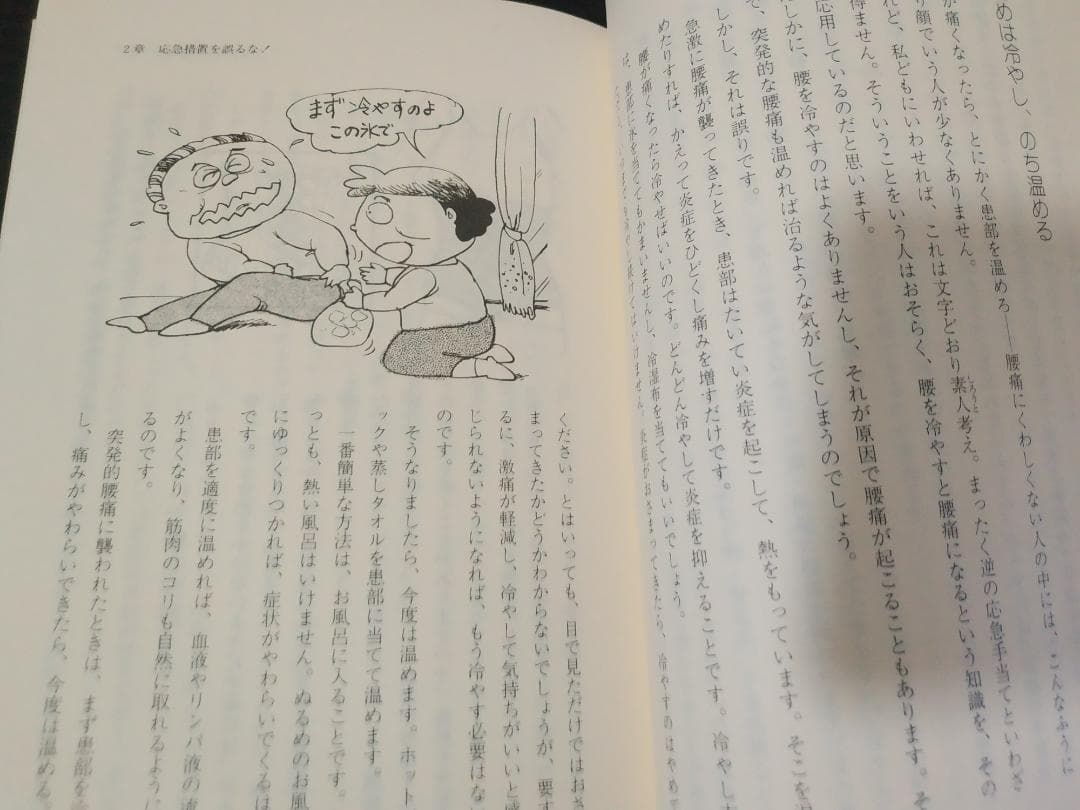 めは冷やし、のち温める
が痛くなったら、とにかく患部を温めろ――腰痛にくわしくない人の中には、こんなふうに
り顔でいう人が少なくありません。
れど、私どもにいわせれば、これは文字どおり素人考え。まったく逆の応急手当てといわざ
しろうと
得ません。そういうことをいう人はおそらく、腰を冷やすと腰痛になるという知識を、その
応用しているのだと思います。
たしかに、腰を冷やすのはよくありませんし、それが原因で腰痛が起こることもあります。そ
で、突発的な腰痛も温めれば治るような気がしてしまうのでしょう。
しかし、それは誤りです。
急激に腰痛が襲ってきたとき、患部はたいてい炎症を起こして、熱をもっています。そこを
めたりすれば、かえって炎症をひどくし痛みを増すだけです。
腰が痛くなったら冷やせばいいのです。どんどん冷やして炎症を抑えることです。冷やし
は、患部に氷を当ててもかまいませんし、冷湿布を当ててもいいでしょう。
炎症がおさまってきたら、冷やすのはやめ
2章 応急措置を誤るな！
まず冷やすのよ
この氷で
ください。とはいっても、目で見ただけではおさ
まってきたかどうかわからないでしょうが、要す
るに、激痛が軽減し、冷やして気持ちがいいと感
じられないようになれば、もう冷やす必要はない
のです。
そうなりましたら、今度は温めます。ホット
ックや蒸しタオルを患部に当てて温めます。
一番簡単な方法は、お風呂に入ることです。
っとも、熱い風呂はいけません。ぬるめのお風
にゆっくりつかれば、症状がやわらいでくるは
です。
患部を適度に温めれば、血液やリンパ液の流
がよくなり、筋肉のコリも自然に取れるように
るのです。
突発的腰痛に襲われたときは、まず患部を冷
し、痛みがやわらいできたら、今度は温める。